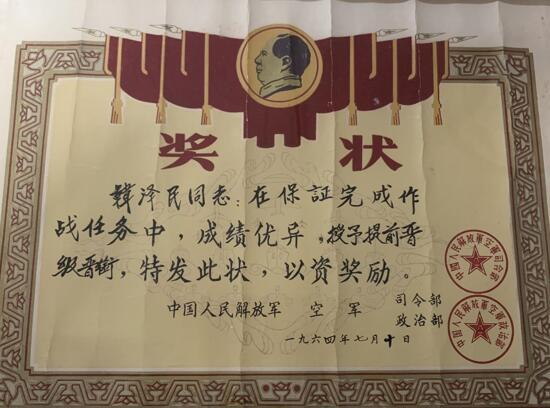 奖状
韓泽民同志：在保証完成作
战任务中，成绩优异，授予提前晋
级晋衔，特发此状，以资奖励。
中国人民解放军 空军 司令部
政治部
一九六四年七月十日
中国人民解放軍空軍司令部
中国人民解放軍空軍政治部